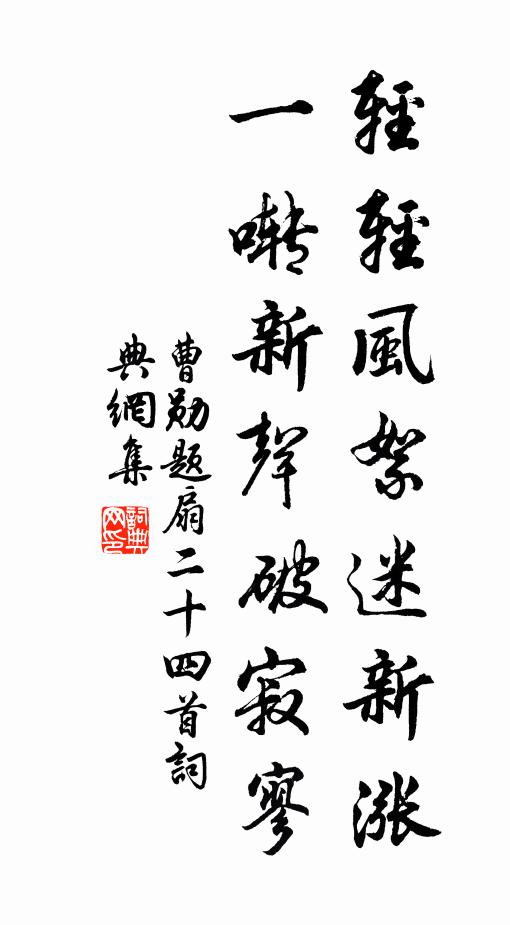 輕輕風絮迷新漲
一囀新聲破寂寥
曹勛題扇二十四首詞
典網集
詞典網印